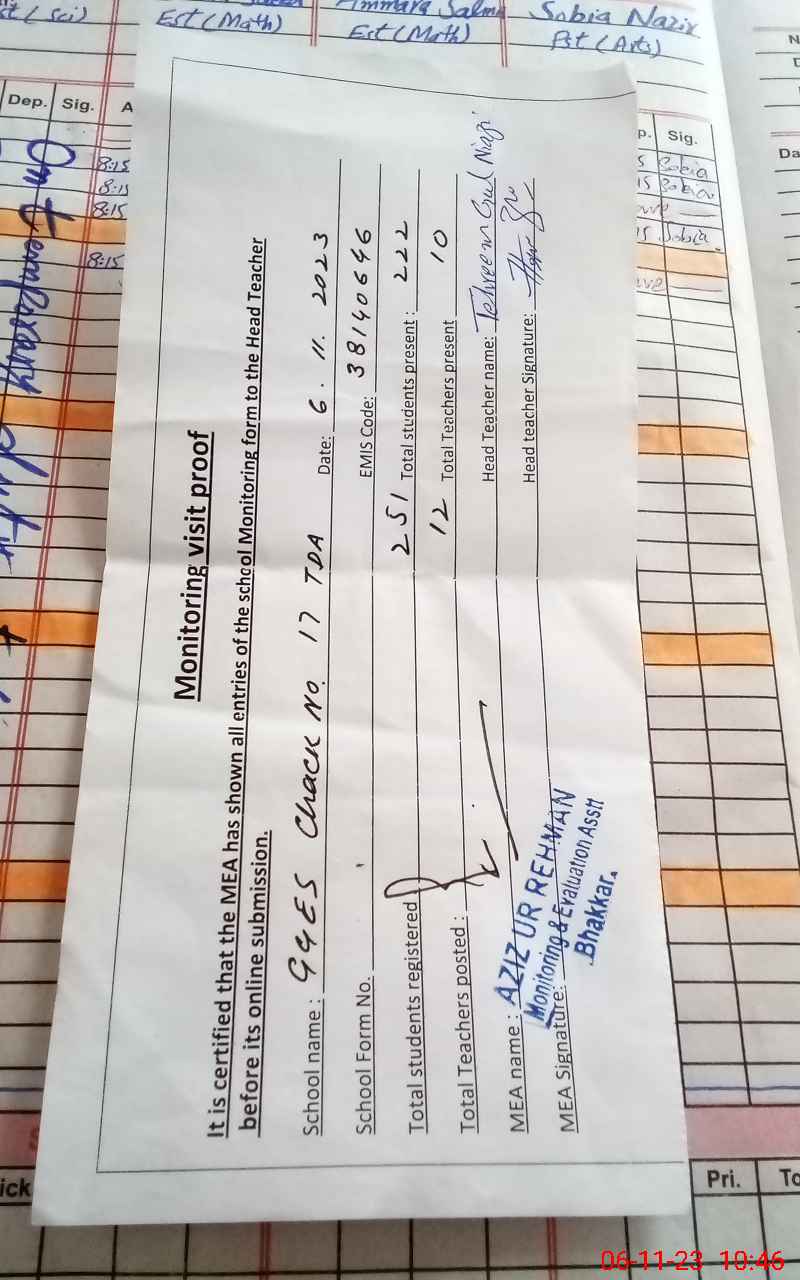 Est (Math)
Ammara Salma
Est (Math)
Sobia Nazir
Pst (Arts)
Dep. Sig. A
8:15
8:15
8:15
8:15
On Temporary
Sig.
Da
Sobia
Sobia
Sobia
Monitoring visit proof
It is certified that the MEA has shown all entries of the school Monitoring form to the Head Teacher
before its online submission.
School name : GGES Chack No. 17 TDA Date: 6. 11. 2023
School Form No. EMIS Code: 38140646
Total students registered 251 Total students present : 222
Total Teachers posted : 12 Total Teachers present 10
MEA name : AZIZ UR REHMAN Head Teacher name: Tehreem Gul Niazi
Monitoring & Evaluation Asstt
Bhakkar.
MEA Signature: Head teacher Signature:
ick
Pri. To
06-11-23 10:46